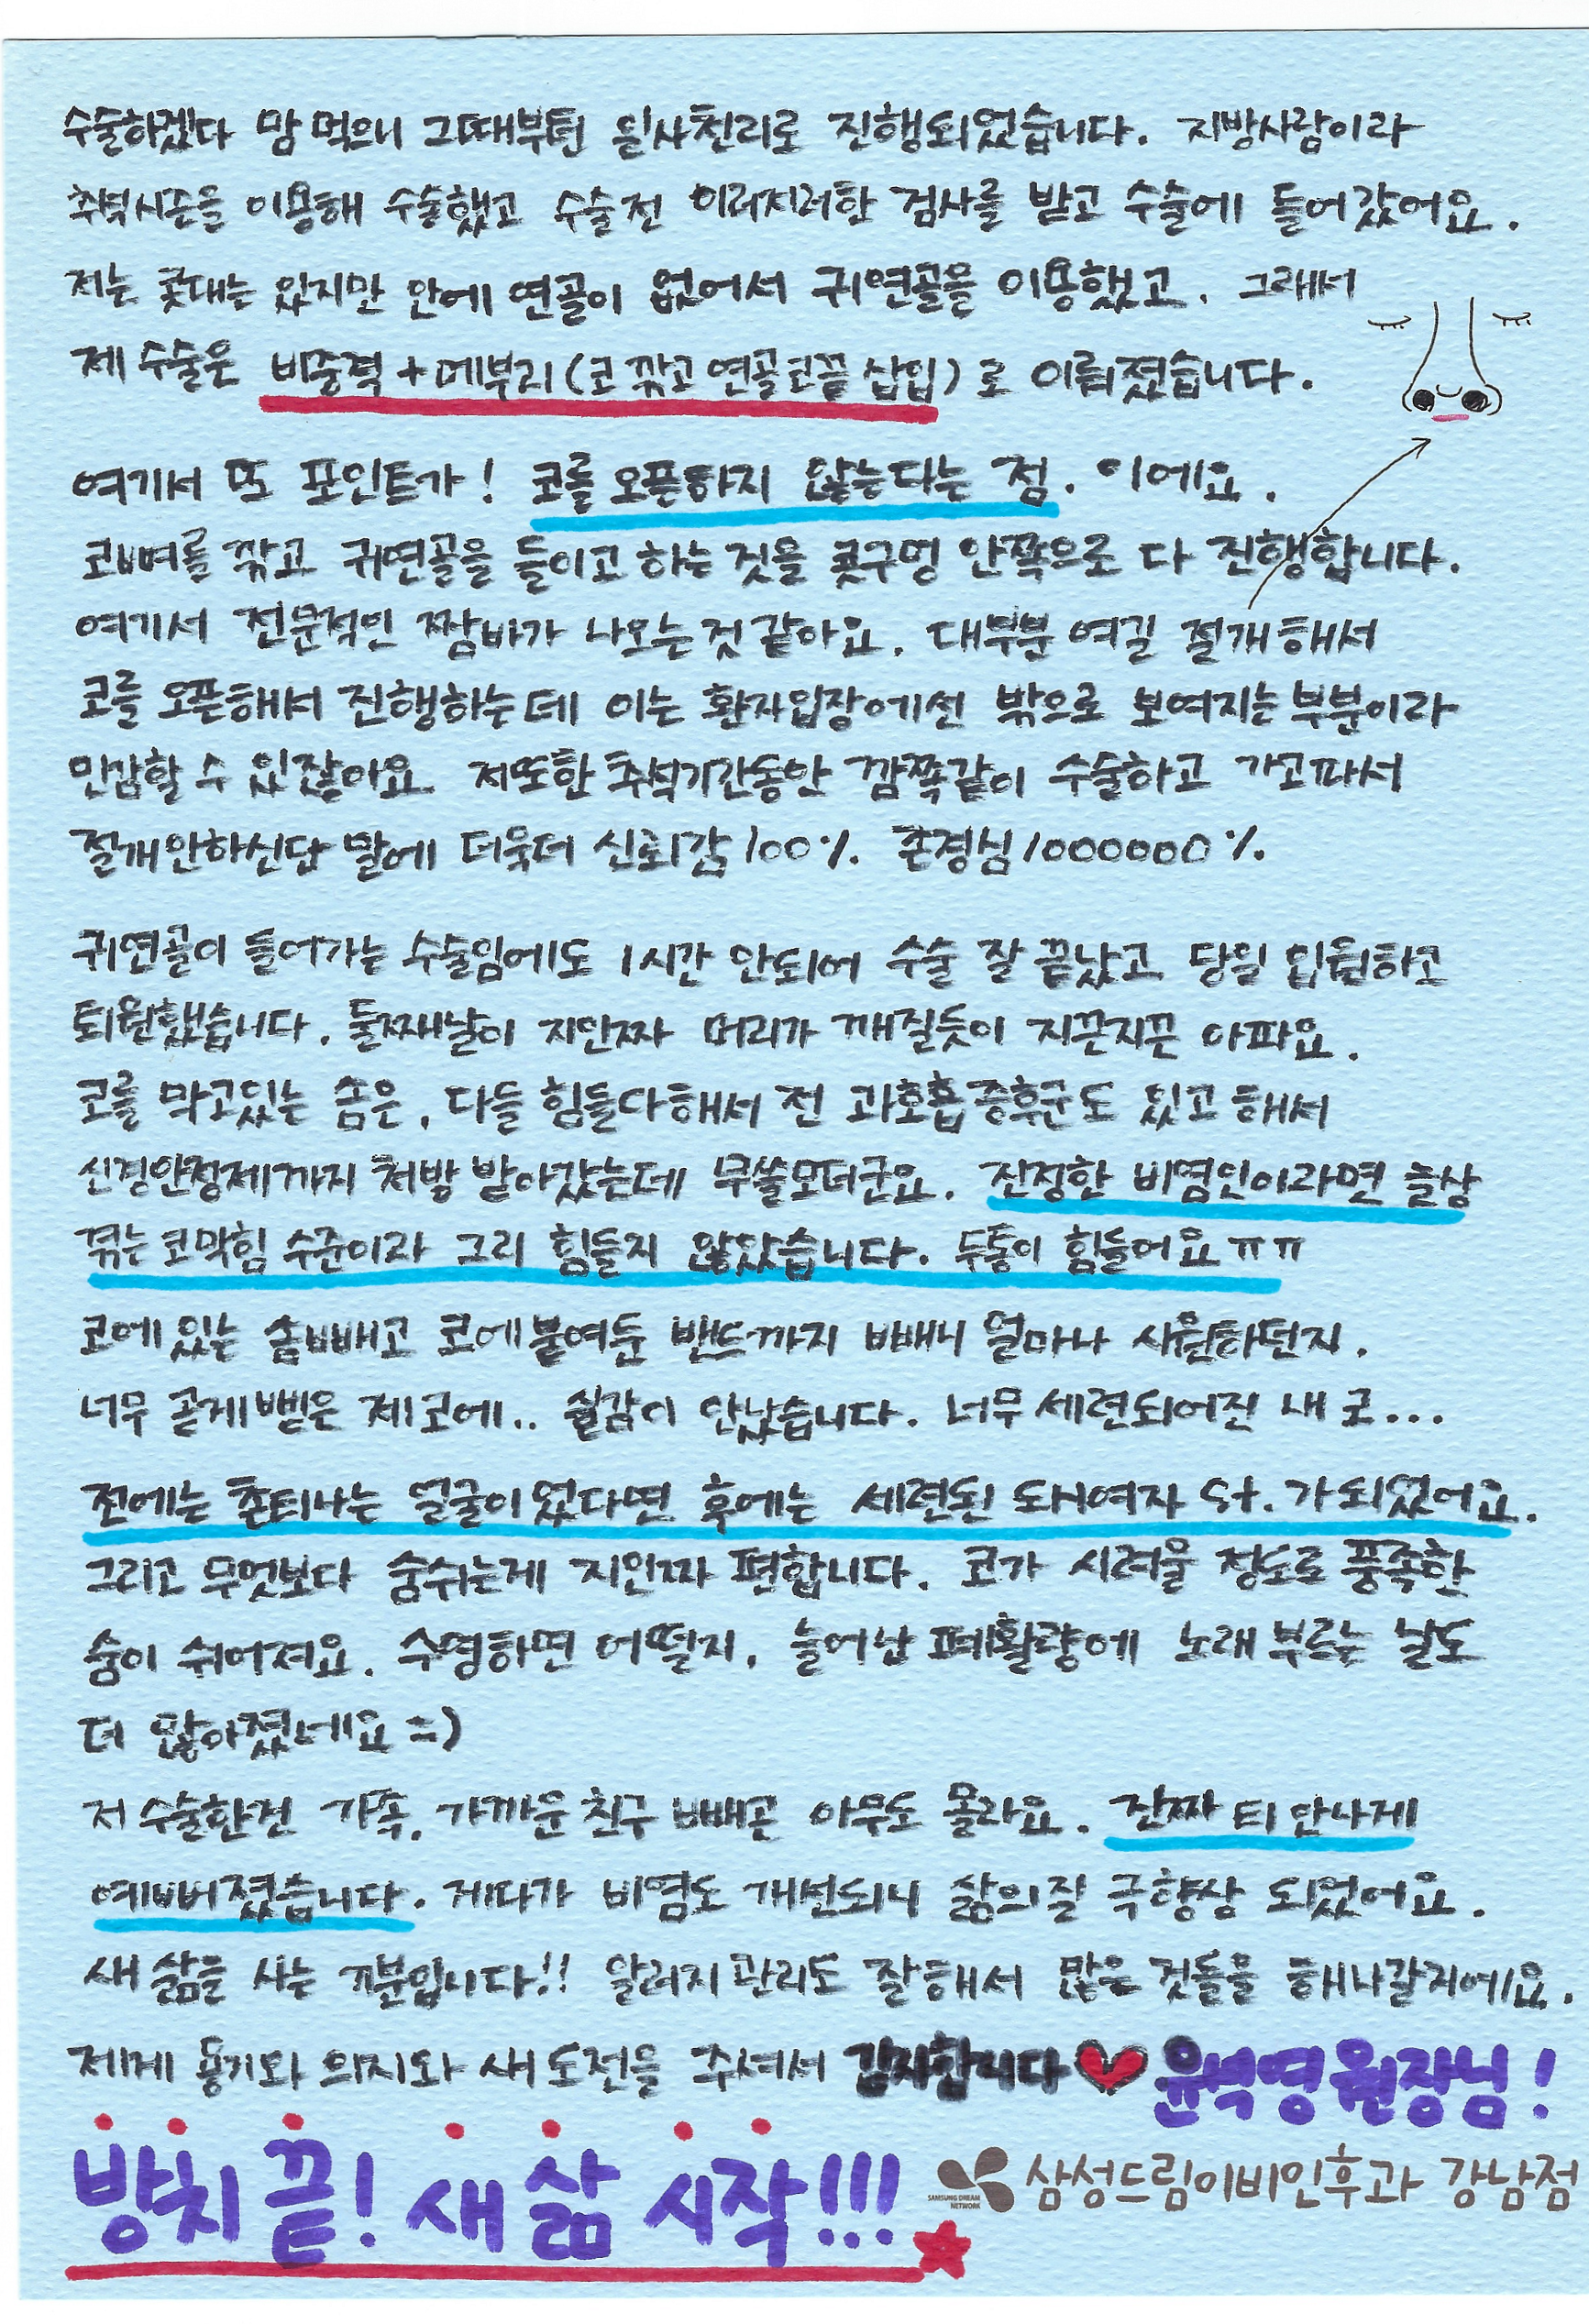 수술하겠다 맘 먹으니 그때부턴 일사천리로 진행되었습니다. 지방사람이라
추석시즌을 이용해 수술했고 수술전 이러저러한 검사를 받고 수술에 들어갔어요.
저는 콧대는 있지만 안에 연골이 없어서 귀연골을 이용했고. 그래서
제 수술은 비중격+메부리(코 깎고 연골코끝 삽입)로 이뤄졌습니다.
여기서 또 포인트가! 코를 오픈하지 않는다는 점. 이에요.
코뼈를 깎고 귀연골을 들이고 하는 것을 콧구멍 안쪽으로 다 진행합니다.
여기서 전문적인 짬바가 나오는것 같아요. 대부분 여길 절개해서
코를 오픈해서 진행하는데 이는 환자입장에선 밖으로 보여지는 부분이라
민감할 수 있잖아요 저또한 추석기간동안 깜쪽같이 수술하고 가고파서
절개안하신단 말에 더욱더 신뢰감100%. 존경심1000000%.
귀연골이 들어가는 수술임에도 1시간 안되어 수술 잘 끝났고 당일 입원하고
퇴원했습니다. 둘째날이 지인짜 머리가 깨질듯이 지끈지끈 아파요.
코를 막고있는 솜은, 다들 힘들다해서 전 과호흡증후군도 있고 해서
신경안정제까지 처방 받아갔는데 무쓸모더군요. 진정한 비염인이라면 늘상
겪는 코막힘 수준이라 그리 힘들지 않았습니다. 두통이 힘들어요ㅠㅠ
코에 있는 솜빼고 코에 붙여둔 밴드까지 빼니 얼마나 시원하던지.
너무 곧게 뻗은 제코에.. 실감이 안났습니다. 너무 세련되어진 내 코...
전에는 촌티나는 얼굴이었다면 후에는 세련된 도시여자 st. 가 되었어요.
그리고 무엇보다 숨쉬는게 지인짜 편합니다. 코가 시려울 정도로 풍족한
숨이 쉬어져요. 수영하면 어떨지, 늘어난 폐활량에 노래 부르는 날도
더 많아졌네요 =)
저 수술한건 가족, 가까운 친구 빼곤 아무도 몰라요. 진짜 티 안나게
예뻐졌습니다. 게다가 비염도 개선되니 삶의 질 극향상 되었어요.
새 삶을 사는 기분입니다!! 알러지 관리도 잘해서 많은 것들을 해나갈거에요.
제게 용기와 의지와 새 도전을 주셔서 감사합니다 ♥ 윤석영 원장님!
방치 끝! 새 삶 시작!!!
SAMSUNG DREAM NETWORK 삼성드림이비인후과 강남점